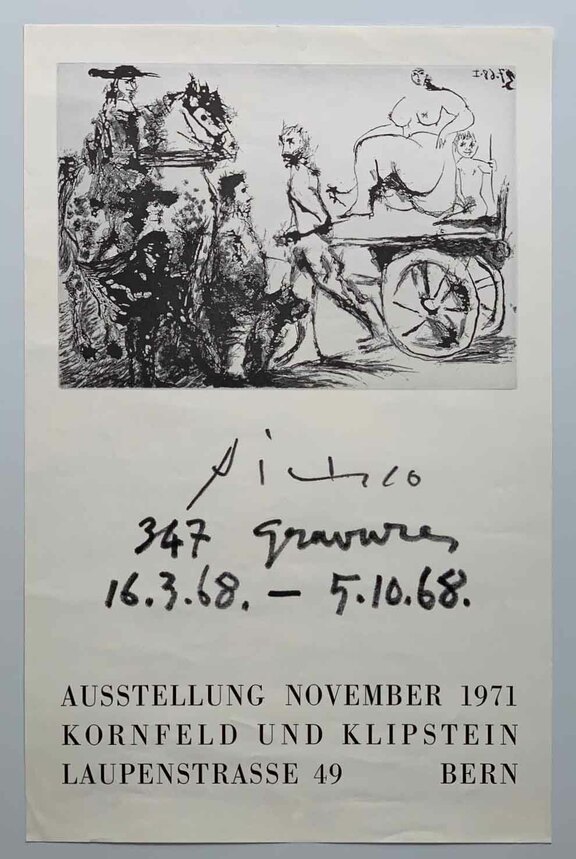 Picasso
347 gravures
16.3.68. – 5.10.68.
AUSSTELLUNG NOVEMBER 1971
KORNFELD UND KLIPSTEIN
LAUPENSTRASSE 49 BERN